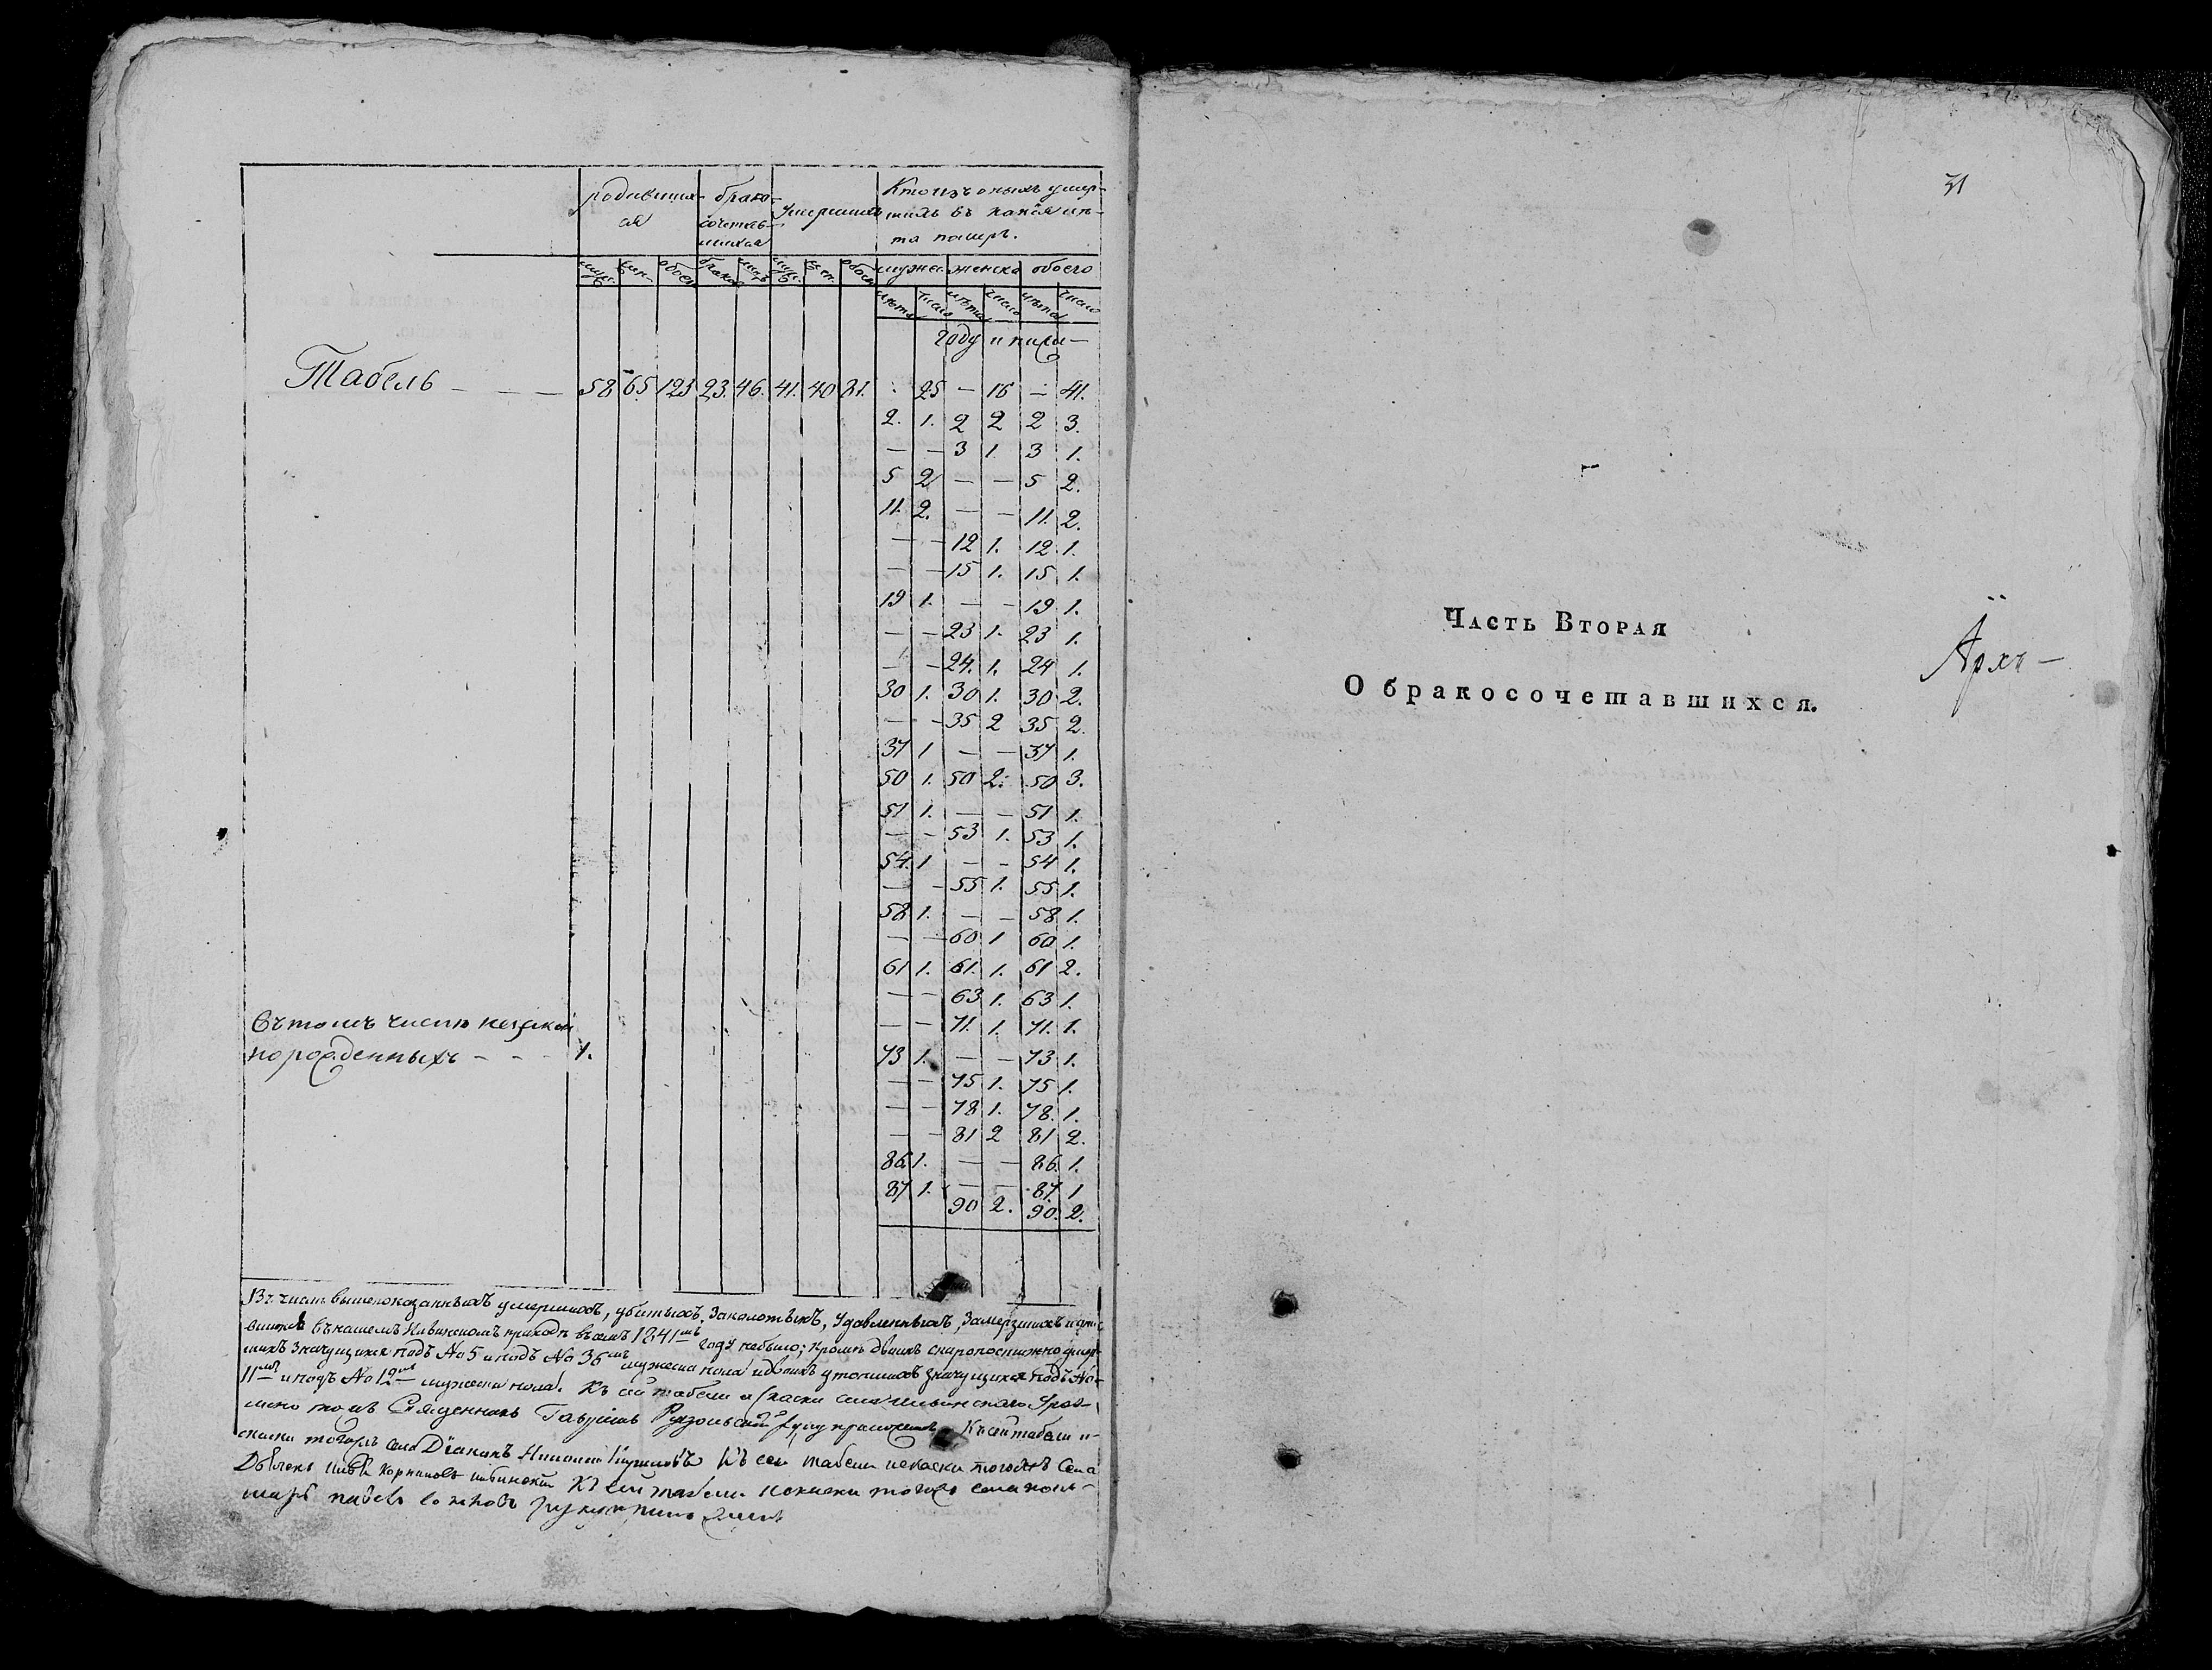 родивших-
ся
брако-
сочетав-
шихся
Умершихъ
Кто изъ оныхъ умер-
шихъ въ какiя лѣ-
та померъ.
муж. жен. обоег. браков. лицъ муж. жен. обоег. мужск. женска обоего
лѣта число лѣта число лѣта число
году и ниже
Табель — — — 58 65. 123 23. 46. 41. 40 81. — 25 — 16 — 41.
2. 1. 2 2 2 3.
— — 3 1 3 1.
5 2 — — 5 2.
11. 2. — — 11. 2.
— — 12 1. 12. 1.
— — 15 1. 15 1.
19 1. — — 19 1.
— — 23 1. 23 1.
— — 24. 1. 24 1.
30 1. 30 1. 30 2.
— — 35 2 35 2.
37 1 — — 37 1.
50 1. 50 2. 50 3.
51 1. — — 51 1.
— — 53 1. 53 1.
54. 1 — — 54 1.
— — 55 1. 55 1.
58 1. — — 58 1.
— — 60 1 60 1.
61 1. 61. 1. 61 2.
— — 63 1. 63 1.
— — 71. 1. 71. 1.
73 1. — — 73 1.
— — 75 1. 75 1.
— — 78 1. 78. 1.
— — 81 2 81 2.
86. 1. — — 86. 1.
87 1. — — 87 1
90 2. 90. 2.
Въ томъ числѣ незакон
норожденныхъ — — — 1.
Въ числѣ вышепоказанныхъ умершихъ, убитыхъ, Заколотыхъ, Удавленныхъ, Замерзшихъ
въ нашемъ приходѣ въ семъ 1841мъ году небыло; кромѣ двоихъ скоропостижно умер-
шихъ значущихся подъ No 5 и подъ No 36мъ мужеска пола и двоихъ утопшихъ значущихся подъ No
11мъ и подъ No 12мъ мужеска пола. Къ сей табели и
Священникъ Гавриилъ руку приложилъ Къ сей табели и
тогожъ села Дiаконъ Къ сей табели тогожъ Села
Къ сей табели тогожъ села
руку приложилъ
31
Часть Вторая
О бракосочетавшихся.
Архъ —